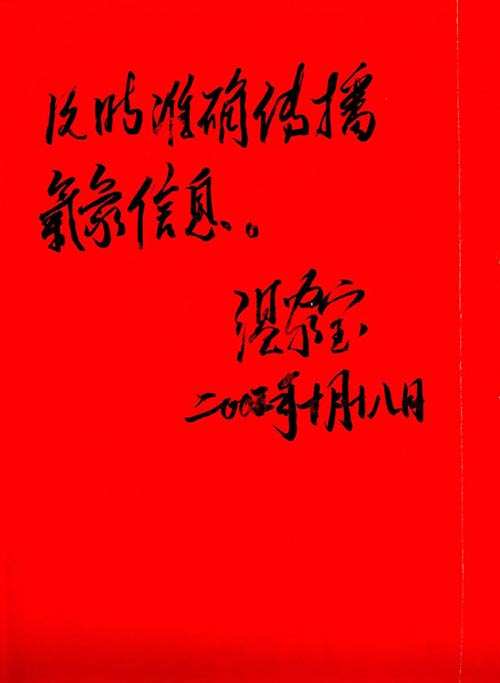 及时准确傳播
氣象信息。
温家宝
二00年十月十八日